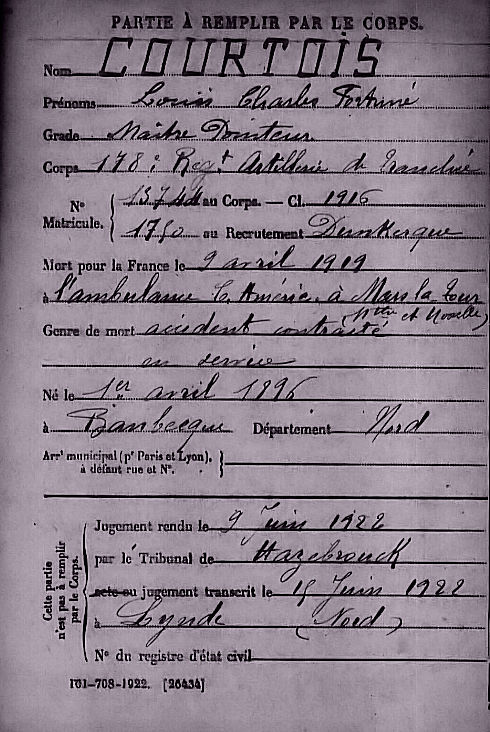 PARTIE À REMPLIR PAR LE CORPS.
Nom COURTOIS
Prénoms Louis Charles Fortuné
Grade Maître Pointeur
Corps 178e Regt Artillerie de Tranchée
N° Matricule. { 13744 au Corps. — Cl. 1916
1750 au Recrutement Dunkerque
Mort pour la France le 9 avril 1919
à l'ambulance à Mars la Tour
(Mthe et Moselle)
Genre de mort accident contracté
en service
Né le 1er avril 1896
à Bambecque Département Nord
Arrt municipal (pr Paris et Lyon), }
à défaut rue et N°.
Cette partie n'est pas à remplir par le Corps.
Jugement rendu le 9 Juin 1922
par le Tribunal de Hazebrouck
acte ou jugement transcrit le 15 Juin 1922
à Lynde (Nord)
N° du registre d'état civil
101-708-1922. [26434]